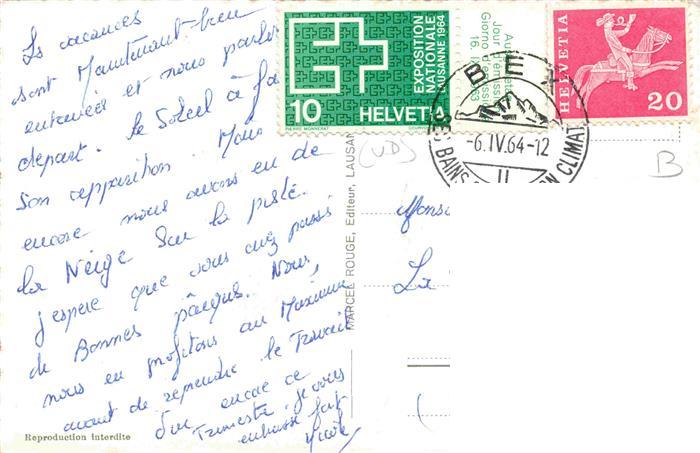 Les vacances
sont Maintenant bien
entamées et nous parlons
départ. le Soleil a fa
Son apparition. Mais
encore nous avons eu de
la Neige Sur la piste.
j'espère que vous avez passé
de Bonnes pâques. Nous,
nous en profitons au Maximum
avant de reprendre le Travail
d'un encore ce
Trimestre je vous
embrasse fort
Reproduction interdite
MARCEL ROUGE, Editeur, LAUSAN
10
HELVETIA
EXPOSITION
NATIONALE
LAUSANNE 1964
PIERRE MONNERAT
COURVOISIER
Jour d'émission
Giorno d'emissio
HELVETIA
20
BEX
-6.IV.64-12
BAINS
CLIMAT
(VD)
B
La